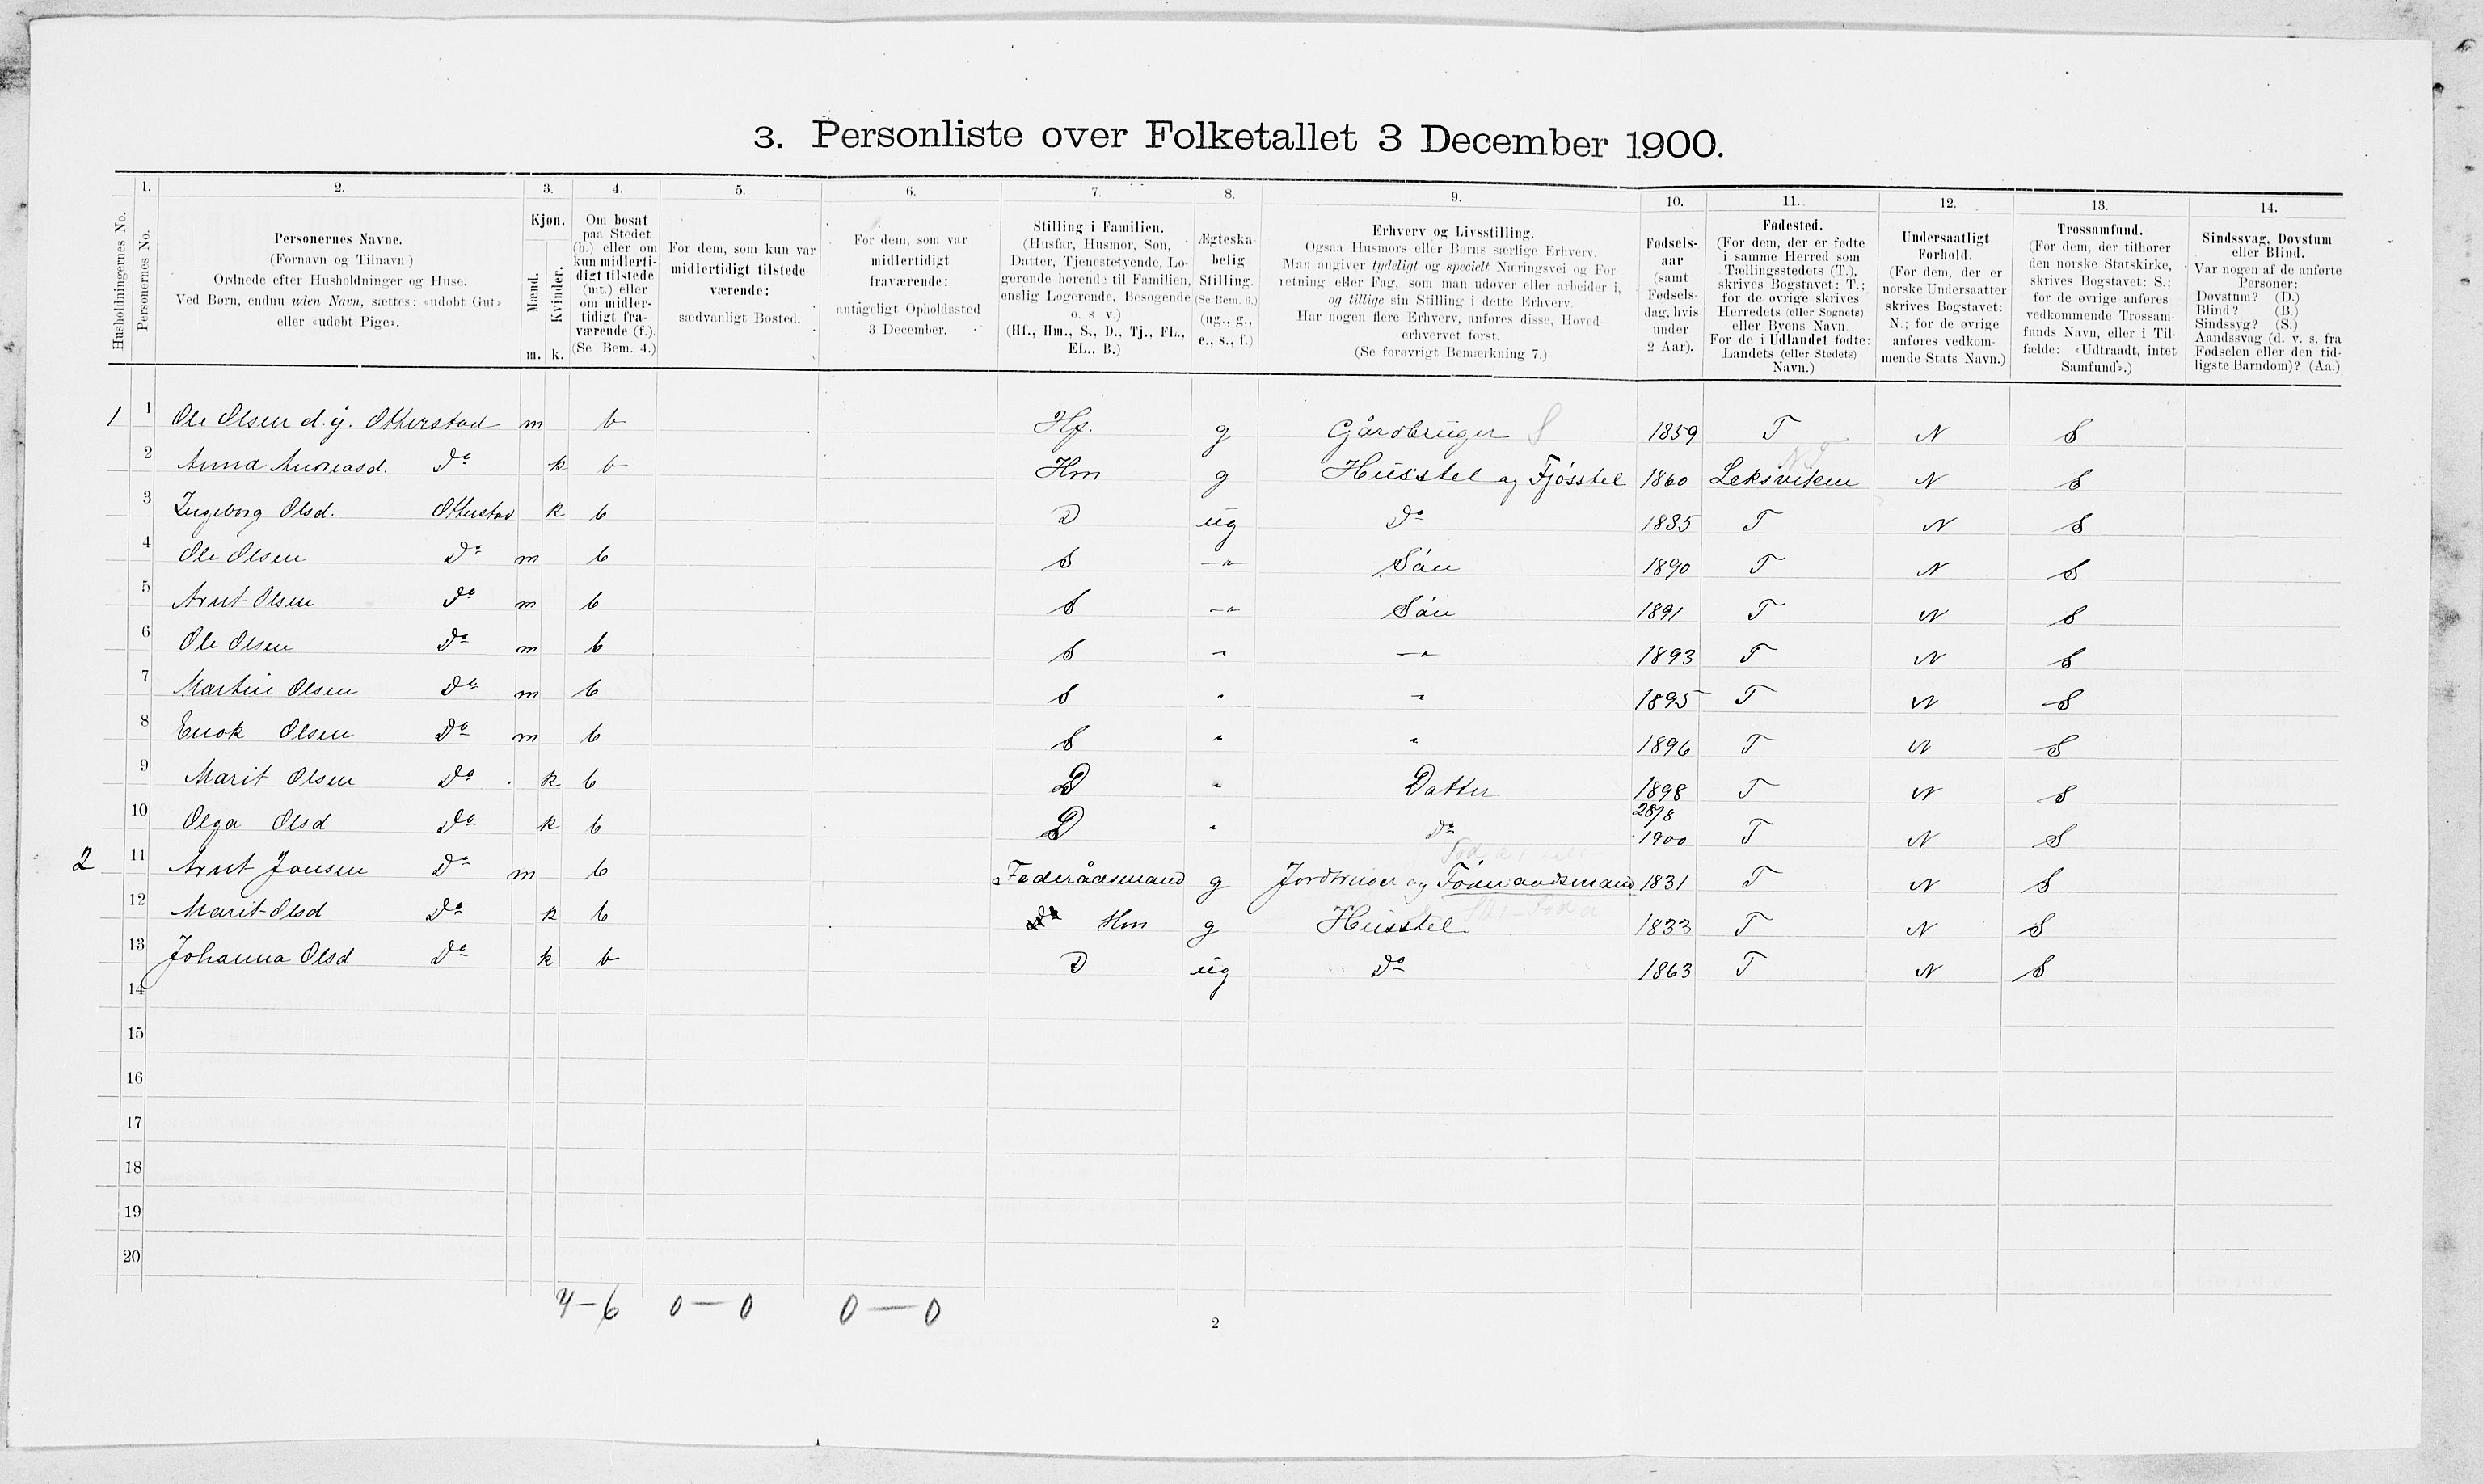 3. Personliste over Folketallet 3 December 1900.
1. 2. 3. 4. 5. 6. 7. 8. 9. 10. 11. 12. 13. 14.
Husholdningernes No.
Personernes No.
Personernes Navne.
(Fornavn og Tilnavn)
Ordnede efter Husholdninger og Huse.
Ved Børn, endnu uden Navn, sættes: «udøbt Gut»
eller «udøbt Pige».
Kjøn.
Mænd.
Kvinder.
m. k.
Om bosat
paa Stedet
(b.) eller om
kun midlerti-
digt tilstede
(mt.) eller
om midler-
tidigt fra-
værende (f.).
(Se Bem. 4.)
For dem, som kun var
midlertidigt tilstede-
værende:
sædvanligt Bosted.
For dem, som var
midlertidigt
fraværende:
antageligt Opholdssted
3 December.
Stilling i Familien.
(Husfar, Husmor, Søn,
Datter, Tjenestetyende, Lo-
gerende hørende til Familien,
enslig Logerende, Besøgende
o. s. v.)
(Hf., Hm., S., D., Tj., FL.,
EL., B.)
Ægteska-
belig
Stilling.
(Se Bem. 6.)
(ug., g.,
e., s., f.)
Erhverv og Livsstilling.
Ogsaa Husmors eller Børns særlige Erhverv.
Man angiver tydeligt og specielt Næringsvei og For-
retning eller Fag, som man udøver eller arbeider i,
og tillige sin Stilling i dette Erhverv.
Har nogen flere Erhverv, anføres disse, Hoved-
erhvervet først.
(Se forøvrigt Bemærkning 7.)
Fødsels-
aar
(samt
Fødsels-
dag, hvis
under
2 Aar).
Fødested.
(For dem, der er fødte
i samme Herred som
Tællingsstedets (T.),
skrives Bogstavet: T.;
for de øvrige skrives
Herredets (eller Sognets)
eller Byens Navn.
For de i Udlandet fødte:
Landets (eller Stedets)
Navn.)
Undersaatligt
Forhold.
(For dem, der er
norske Undersaatter
skrives Bogstavet:
N.; for de øvrige
anføres vedkom-
mende Stats Navn.)
Trossamfund.
(For dem, der tilhører
den norske Statskirke,
skrives Bogstavet: S.;
for de øvrige anføres
vedkommende Trossam-
funds Navn, eller i Til-
fælde: «Udtraadt, intet
Samfund».)
Sindssvag, Døvstum
eller Blind.
Var nogen af de anførte
Personer:
Døvstum? (D.)
Blind? (B.)
Sindssyg? (S.)
Aandssvag (d. v. s. fra
Fødselen eller den tid-
ligste Barndom)? (Aa.)
1 1 Ole Olsen d.y. Otterstad m b Hf. g Gårdbruger S 1859 T N S
2 Anna Andreasd. Do k b Hm g Husstel og Fjøsstel 1860 Leksviken N S
3 Ingeborg Olsd. Otterstad k b D ug Do 1885 T N S
4 Ole Olsen Do m b S —"— Sön 1890 T N S
5 Arnt Olsen Do m b S —"— Sön 1891 T N S
6 Ole Olsen Do m b S " —"— 1893 T N S
7 Martin Olsen Do m b S " " 1895 T N S
8 Enok Olsen Do m b S " " 1896 T N S
9 Marit Olsen Do k b D " Datter 1898 T N S
10 Olga Olsd Do k b D " Do 28/8 1900 T N S
2 11 Arnt Jonsen Do m b Føderådsmand g Jordbruger og Föderaadsmand 1831 T N S
12 Marit Olsd Do k b Do Hm g Husstel 1833 T N S
13 Johanna Olsd Do k b D ug Do 1863 T N S
14
15
16
17
18
19
20
7–6 0–0 0–0
2